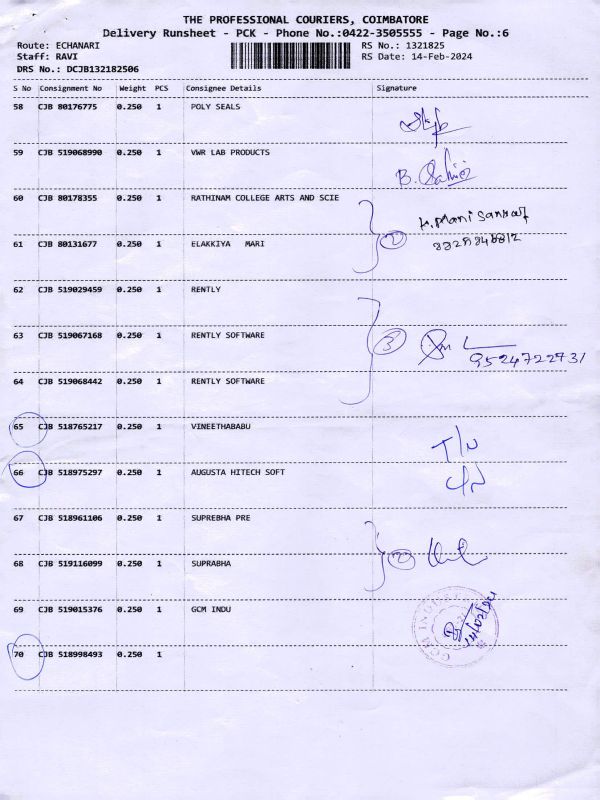 THE PROFESSIONAL COURIERS, COIMBATORE
Delivery Runsheet - PCK - Phone No.:0422-3505555 - Page No.:6
Route: ECHANARI RS No.: 1321825
Staff: RAVI RS Date: 14-Feb-2024
DRS No.: DCJB132182506
S No Consignment No Weight PCS Consignee Details Signature
58 CJB 80176775 0.250 1 POLY SEALS
59 CJB 519068990 0.250 1 VWR LAB PRODUCTS
B.
60 CJB 80178355 0.250 1 RATHINAM COLLEGE ARTS AND SCIE
2
61 CJB 80131677 0.250 1 ELAKKIYA MARI
62 CJB 519029459 0.250 1 RENTLY
63 CJB 519067168 0.250 1 RENTLY SOFTWARE
3 9524722731
64 CJB 519068442 0.250 1 RENTLY SOFTWARE
65 CJB 518765217 0.250 1 VINEETHABABU
66 CJB 518975297 0.250 1 AUGUSTA HITECH SOFT
67 CJB 518961106 0.250 1 SUPREBHA PRE
2
68 CJB 519116099 0.250 1 SUPRABHA
69 CJB 519015376 0.250 1 GCM INDU
70 CJB 518998493 0.250 1